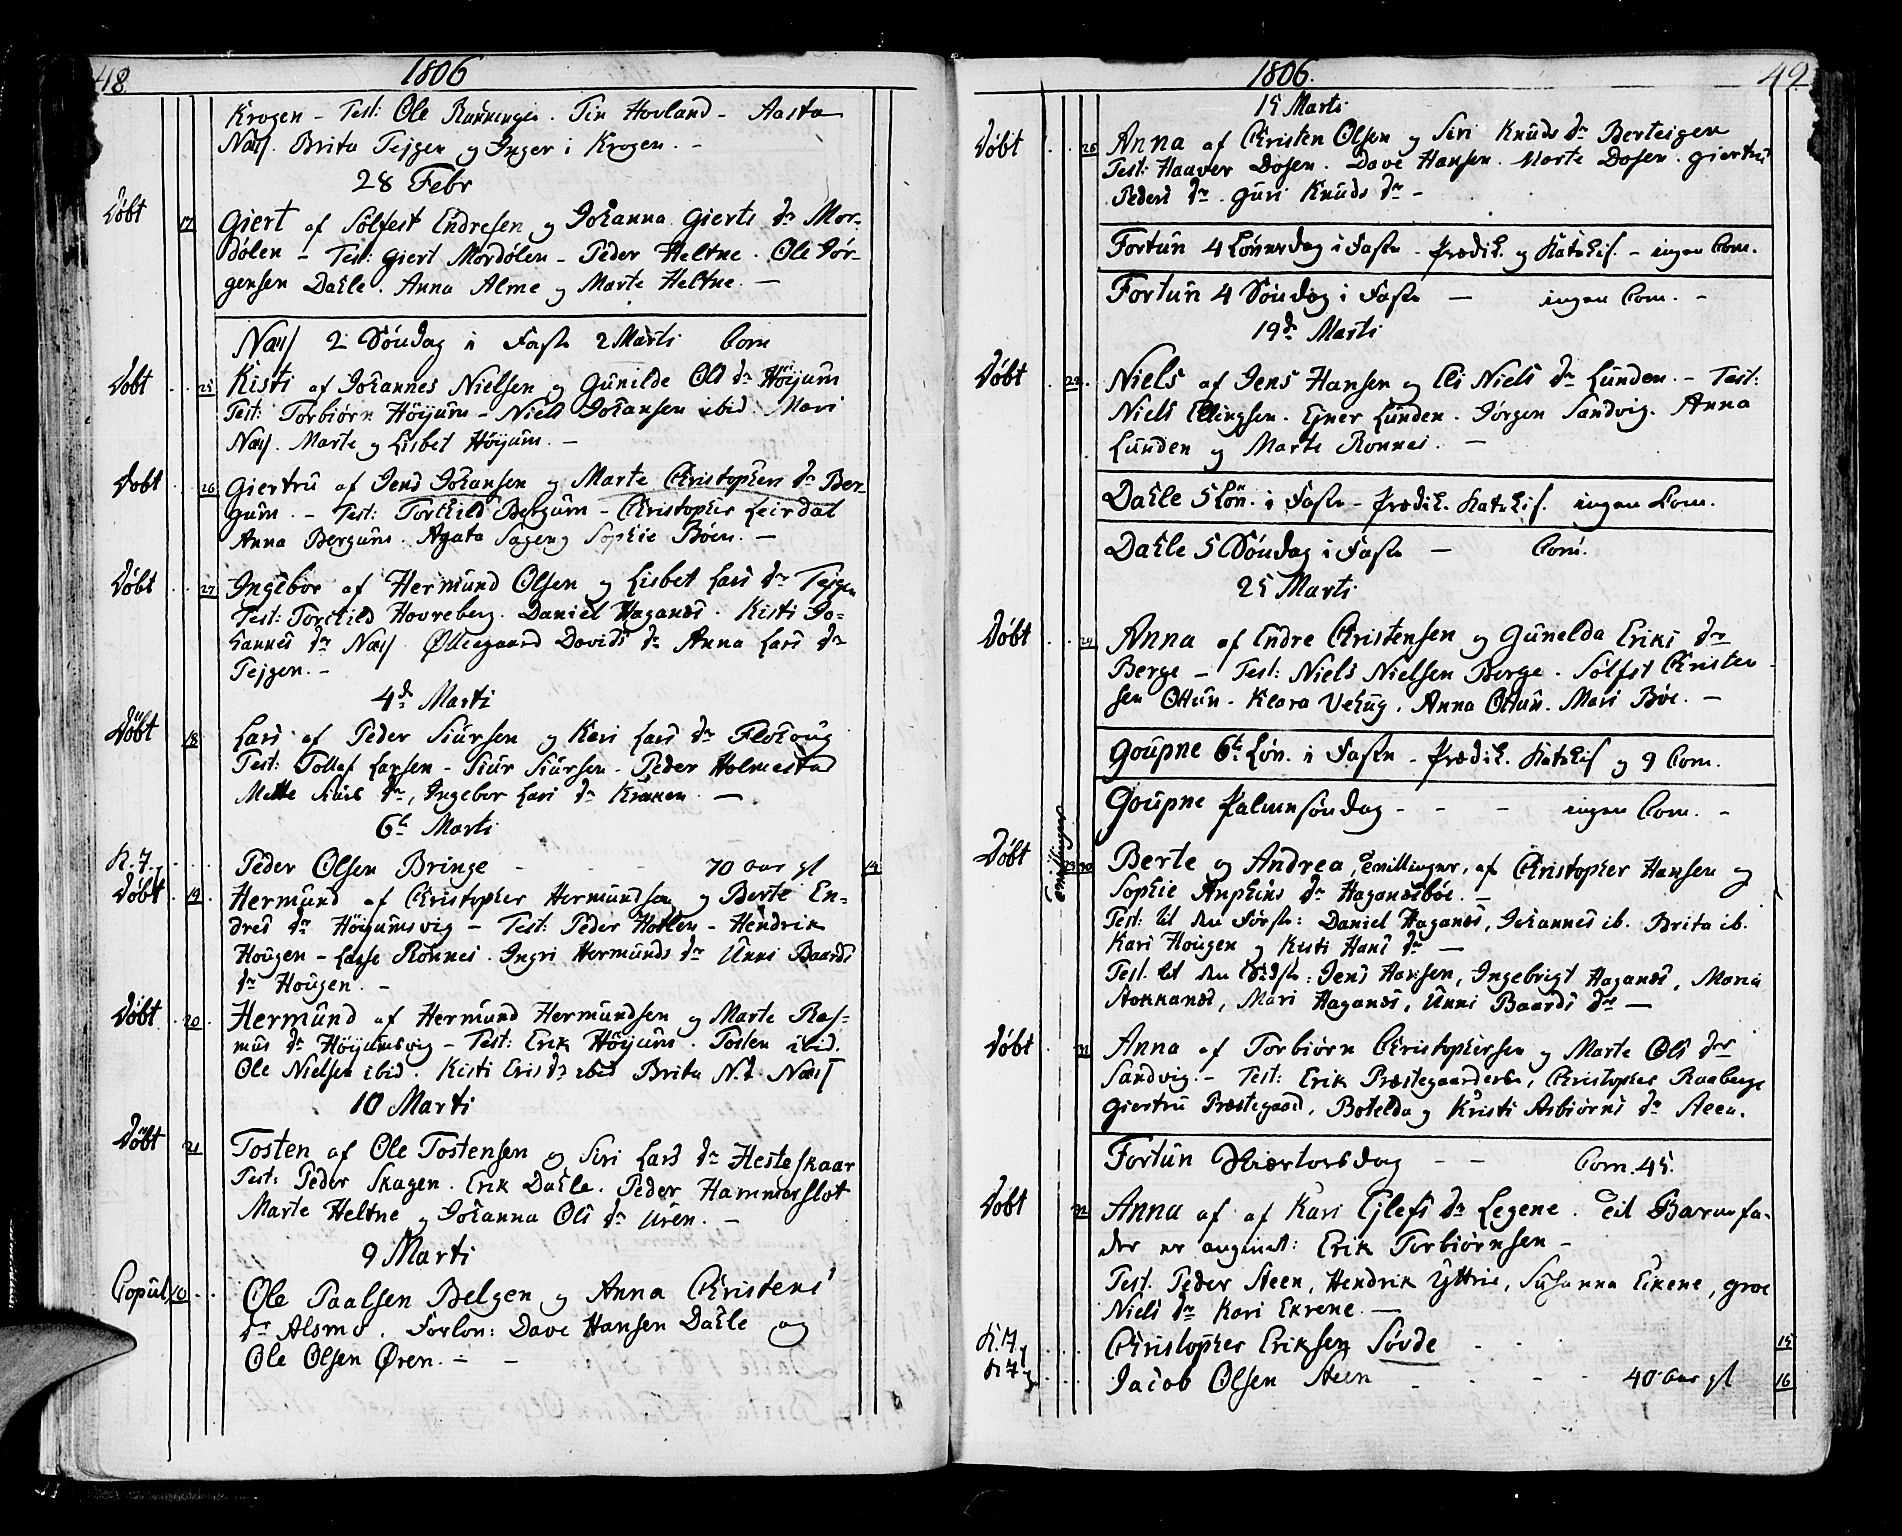 48 1806
Krogen - Test: Ole Rønningen. Tin Hovland - Aasta
Næs. Brita Tejgen og Inger i Krogen. -
28 Febr
Døbt 17 Giert af Sølfest Endresen og Johanna Gierts dr Mor-
dølen - Test: Giert Mordølen - Peder Heltne. Ole Jør-
gensen Dahle. Anna Alme og Marte Heltne. -
Næs 2 Søndag i Faste 2 Marti Com
Døbt 25 Kisti af Johannes Nielsen og Gunilde Ols dr Høijum
Test: Torbiørn Høijum - Niels Johansen ibid. Mari
Næs. Marte og Lisbet Høijum. -
Døbt 26 Giertru af Jens Johansen og Marte Christophers dr Ber-
gum. - Test: Torchild Bergum - Christopher Leirdal
Anna Bergum. Agata Sagen og Sophie Bøen. -
Døbt 27 Ingebor af Hermund Olsen og Lisbet Lars dr Tejgen
Test: Torchild Hovreberg. Daniel Haganæs. Kisti Jo-
hannes dr Næs Øllegaard Davids dr Anna Lars dr
Tejgen. -
4d Marti
Døbt 18 Lars af Peder Siursen og Kari Lars dr Flohoug
Test: Tollef Larsen - Siur Siursen - Peder Holmestad
Mette Siurs dr, Ingebor Lars dr Kroken -
6t Marti
K. 7. Peder Olsen Bringe - - - 70 aar gl 14
Døbt 19 Hermund af Christopher Hermundsen og Berte En-
dres dr Høijumsvig - Test: Peder Hotlen - Hendrik
Hougen - Lasse Rønnei. Ingri Hermunds dr Unni Baards
dr Hougen. -
Døbt 20 Hermund af Hermund Hermundsen og Marte Ras-
mus dr Høijumsvig - Test: Erik Høijum. Tosten ibid.
Ole Nielsen ibid. Kisti Eris dr ibid Brita N.d. Næss
10 Marti
Døbt 21 Tosten af Ole Tostensen og Siri Lars dr Hesteskaar
Test: Peder Skagen. Erik Dahle. Peder Hammerslot
Marte Heltne og Johanna Ols dr Uren. -
9 Marti
Copul 10 Ole Paalsen Belgen og Anna Christens
dr Alsmo. Forlov: Dave Hansen Dahle og
Ole Olsen Øren. - -
1806. 49
15 Marti
Døbt 28 Anna af Christen Olsen og Siri Knuds dr Berteigen
Test: Haaver Dosen. Dave Hansen. Marte Dosen. Giertru
Peders dr. Guri Knuds dr -
Fortun 4 Løverdag i Faste - Prædik. og Katekis. - ingen Com.
Fortun 4 Søndag i Faste - ingen Com. -
19d Marti
Døbt 22 Niels af Jens Hansen og Eli Niels dr Lunden. - Test:
Niels Ellingsen. Ejner Lunden. Jørgen Sandvig. Anna
Lunden og Marte Ronnei. -
Dahle 5 Løv. i Faste - Prædik. Katekis. ingen Com.
Dahle 5 Søndag i Faste - Com.
25 Marti
Døbt 29 Anna af Endre Christensen og Gunelda Eriks dr
Berge - Test: Niels Nielsen Berge. Sølfest Christen-
sen Ottun. Klara Vehug. Anna Ottun. Mari Bøe. -
Goupne 6te Løv. i Faste - Prædik. Katekis og 9 Com.
Goupne Palmesøndag - - - ingen Com. -
Døbt tvillinger 23 30 Berte og Andrea, tvillinger, af Christopher Hansen og
Sophie Anphins dr Haganæsbøe. -
Test: til den første: Daniel Haganæs, Johannes ib. Brita ib.
Kari Hougen og Kisti Hans dr -
Test. til den sidste: Jens Hansen, Ingebrigt Haganæs, Maria
Stokkanæs, Mari Haganæs, Unni Baards dr -
Døbt 31 Anna af Torbiørn Christophersen og Marte Ols dr
Sandvig. - Test: Erik Præstegaarden, Christopher Raaberge
Giertru Præstegaard, Botelda og Kristi Asbiørns dr Steen.
Fortun Skiærtorsdag - - Com. 45.
Døbt 32 Anna af af Kari Ejlefs dr Legene. til Barnefa-
der er angivet: Erik Torbiørnsen -
Test. Peder Steen, Hendrik Yttrie, Susanna Eikene, Groe
Niels dr Kari Ekrene. -
K. 7. Christopher Eriksen Søvde - - 15
K. 7. Jacob Olsen Steen - - - - 40 aar gl 16